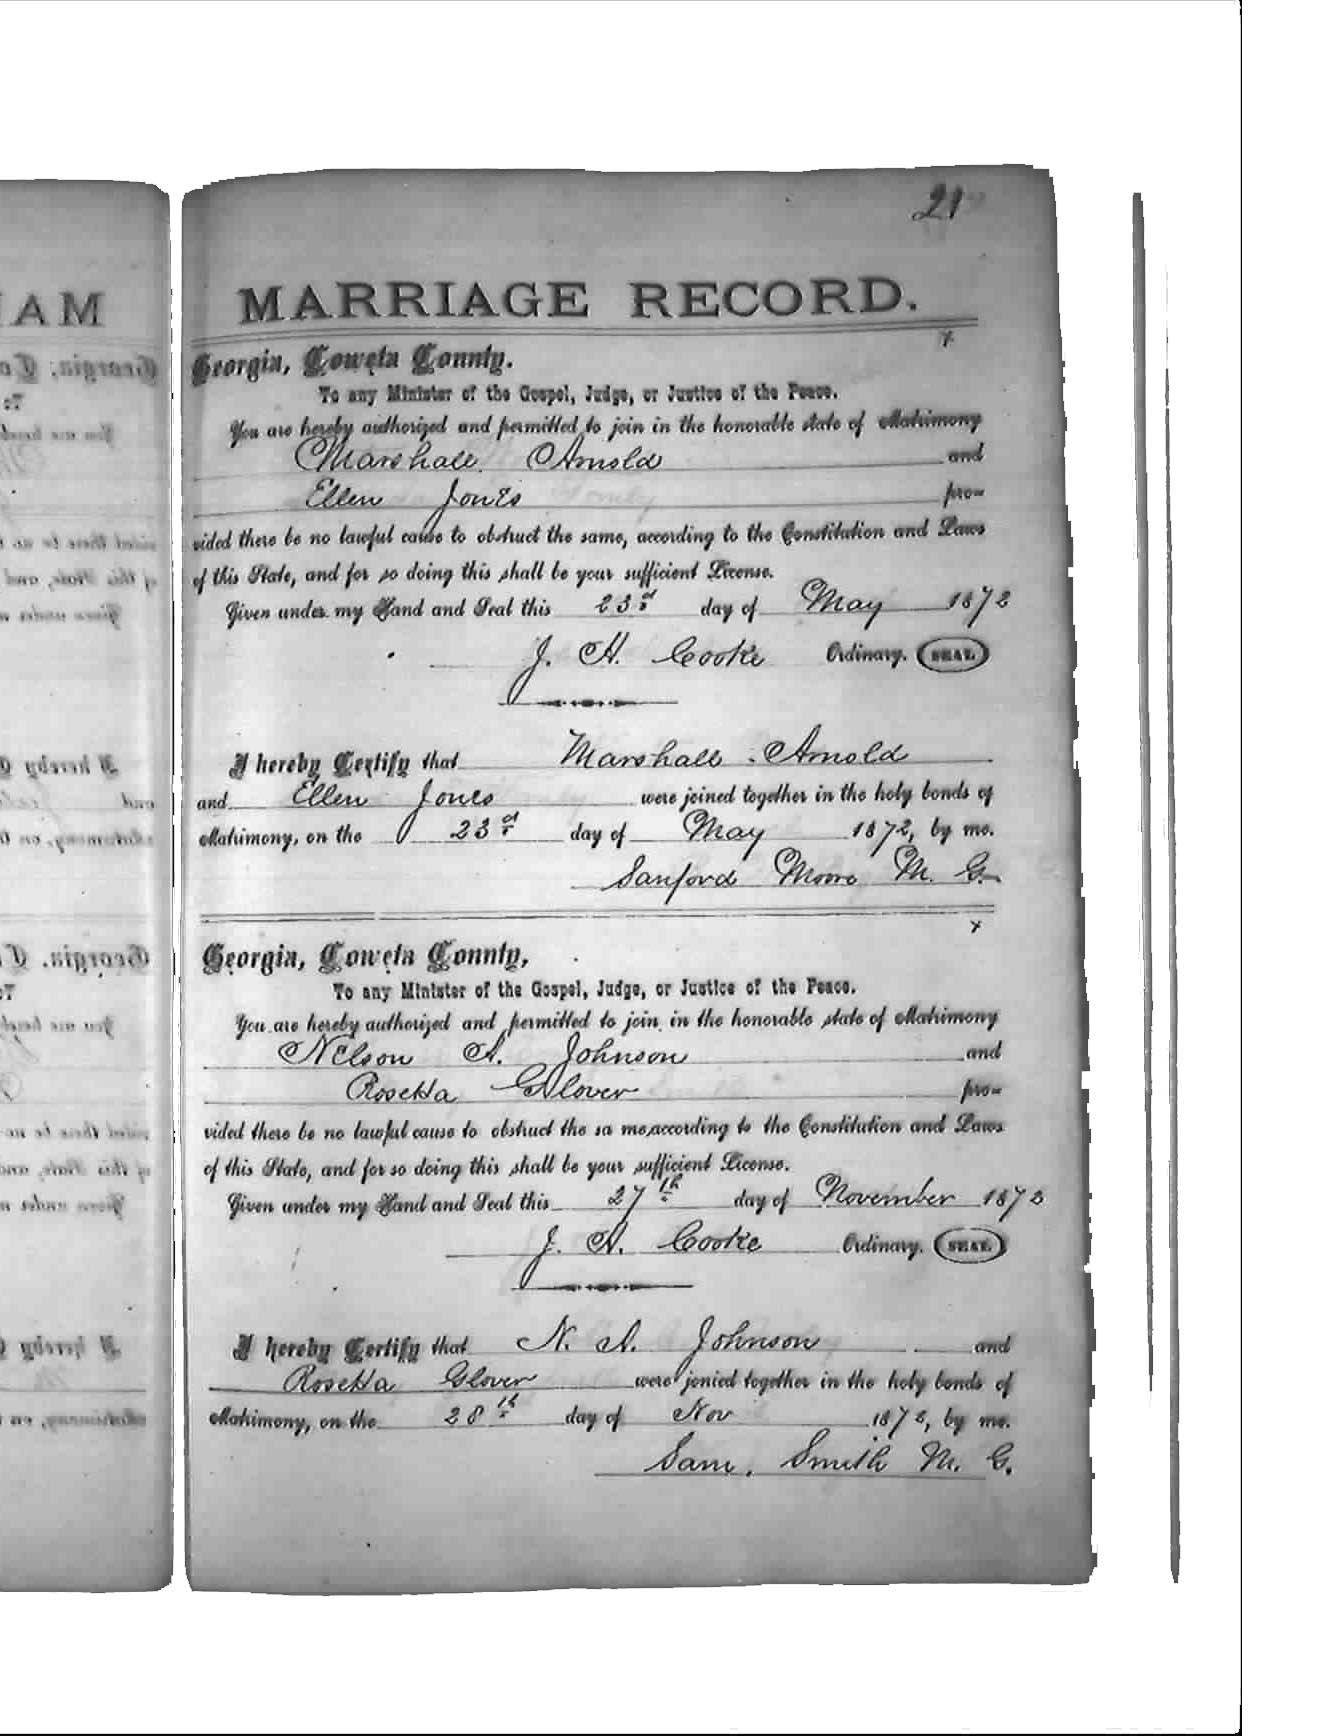 21
MARRIAGE RECORD.
Georgia, Coweta County.
To any Minister of the Gospel, Judge, or Justice of the Peace.
You are hereby authorized and permitted to join in the honorable state of Matrimony
Marshall Arnold and
Ellen Jones pro-
vided there be no lawful cause to obstruct the same, according to the Constitution and Laws
of this State, and for so doing this shall be your sufficient License.
Given under my Hand and Seal this 23d day of May 1872
J. H. Cooke Ordinary. SEAL.
I hereby Certify that Marshall Arnold
and Ellen Jones were joined together in the holy bonds of
Matrimony, on the 23d day of May 1872, by me.
Sanford Moore M. G.
Georgia, Coweta County,
To any Minister of the Gospel, Judge, or Justice of the Peace.
You are hereby authorized and permitted to join in the honorable state of Matrimony
Nelson A. Johnson and
Rosetta Glover pro-
vided there be no lawful cause to obstruct the sa me,according to the Constitution and Laws
of this State, and for so doing this shall be your sufficient License.
Given under my Hand and Seal this 27th day of November 1872
J. H. Cooke Ordinary. SEAL.
I hereby Certify that N. A. Johnson and
Rosetta Glover were jonied together in the holy bonds of
Matrimony, on the 28th day of Nov 1872, by me.
Sam. Smith M. G.